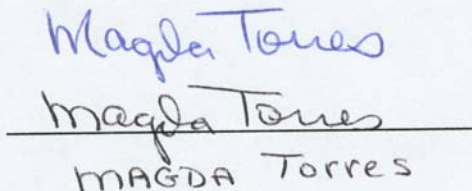 Magda Torres
Magda Torres
MAGDA Torres